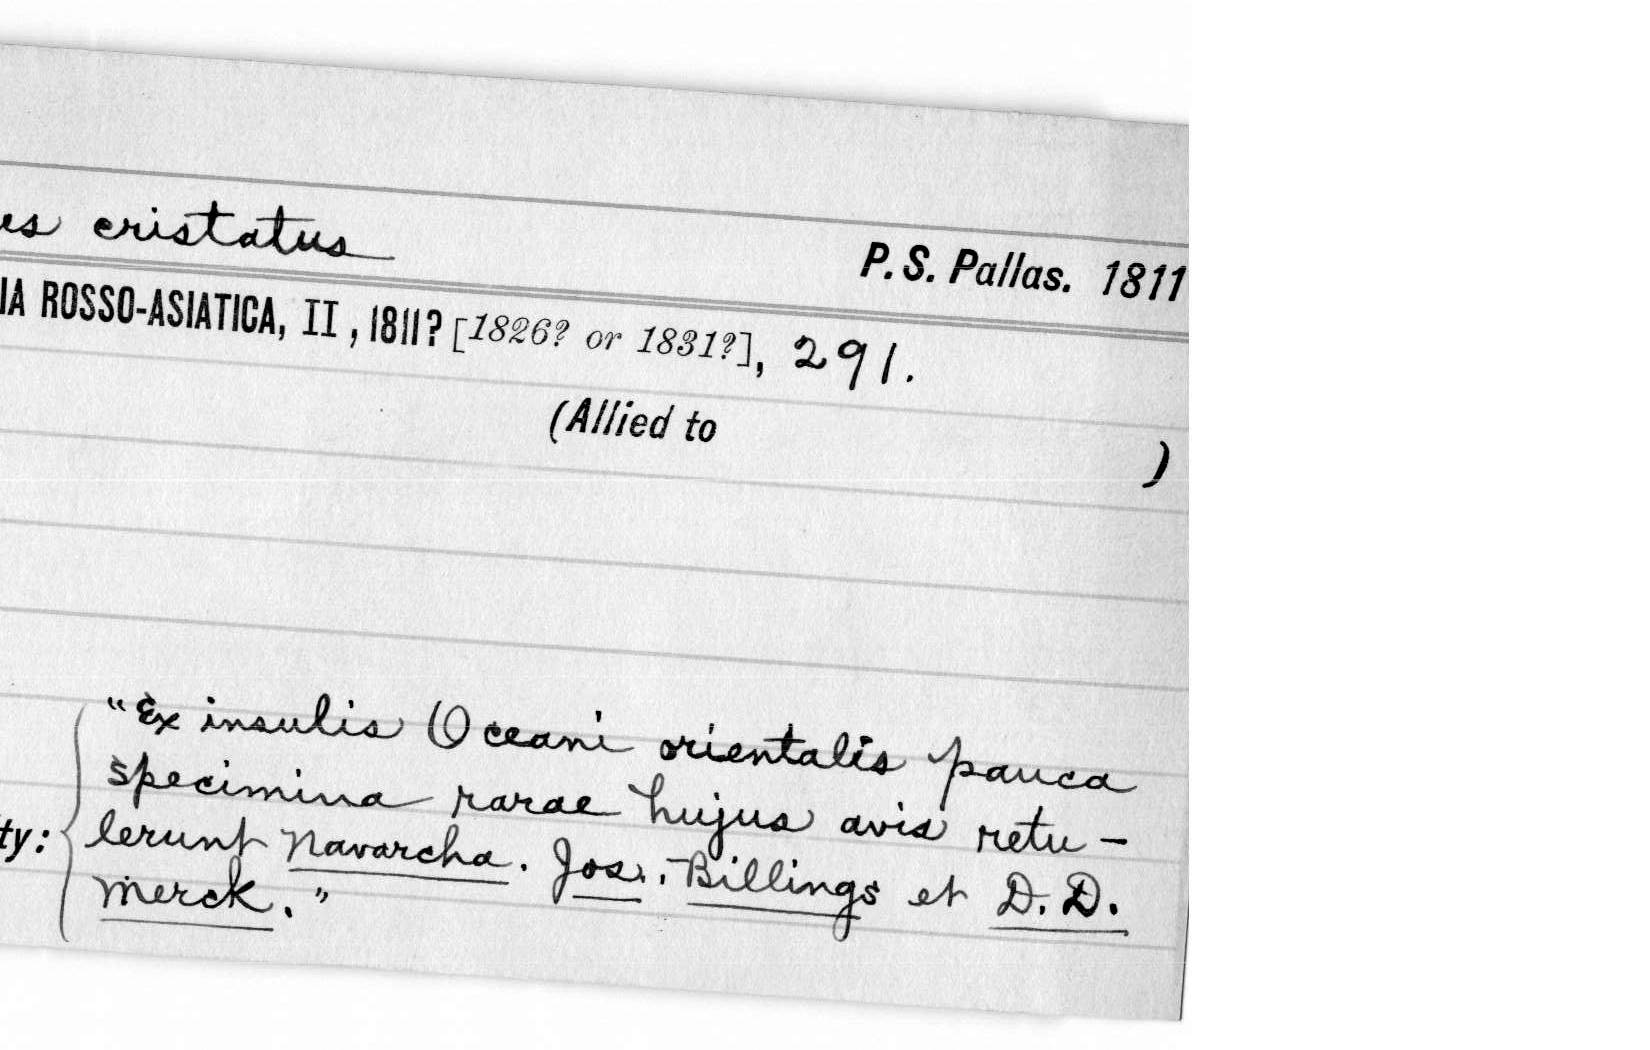 us cristatus
P. S. Pallas. 1811
IA ROSSO-ASIATICA, II, 1811? [1826? or 1831?], 291.
(Allied to )
"Ex insulis Oceani orientalis pauca
specimina rarae hujus avis retu-
ty: lerunt Navarcha. Jos.. Billings et D. D.
Merck."